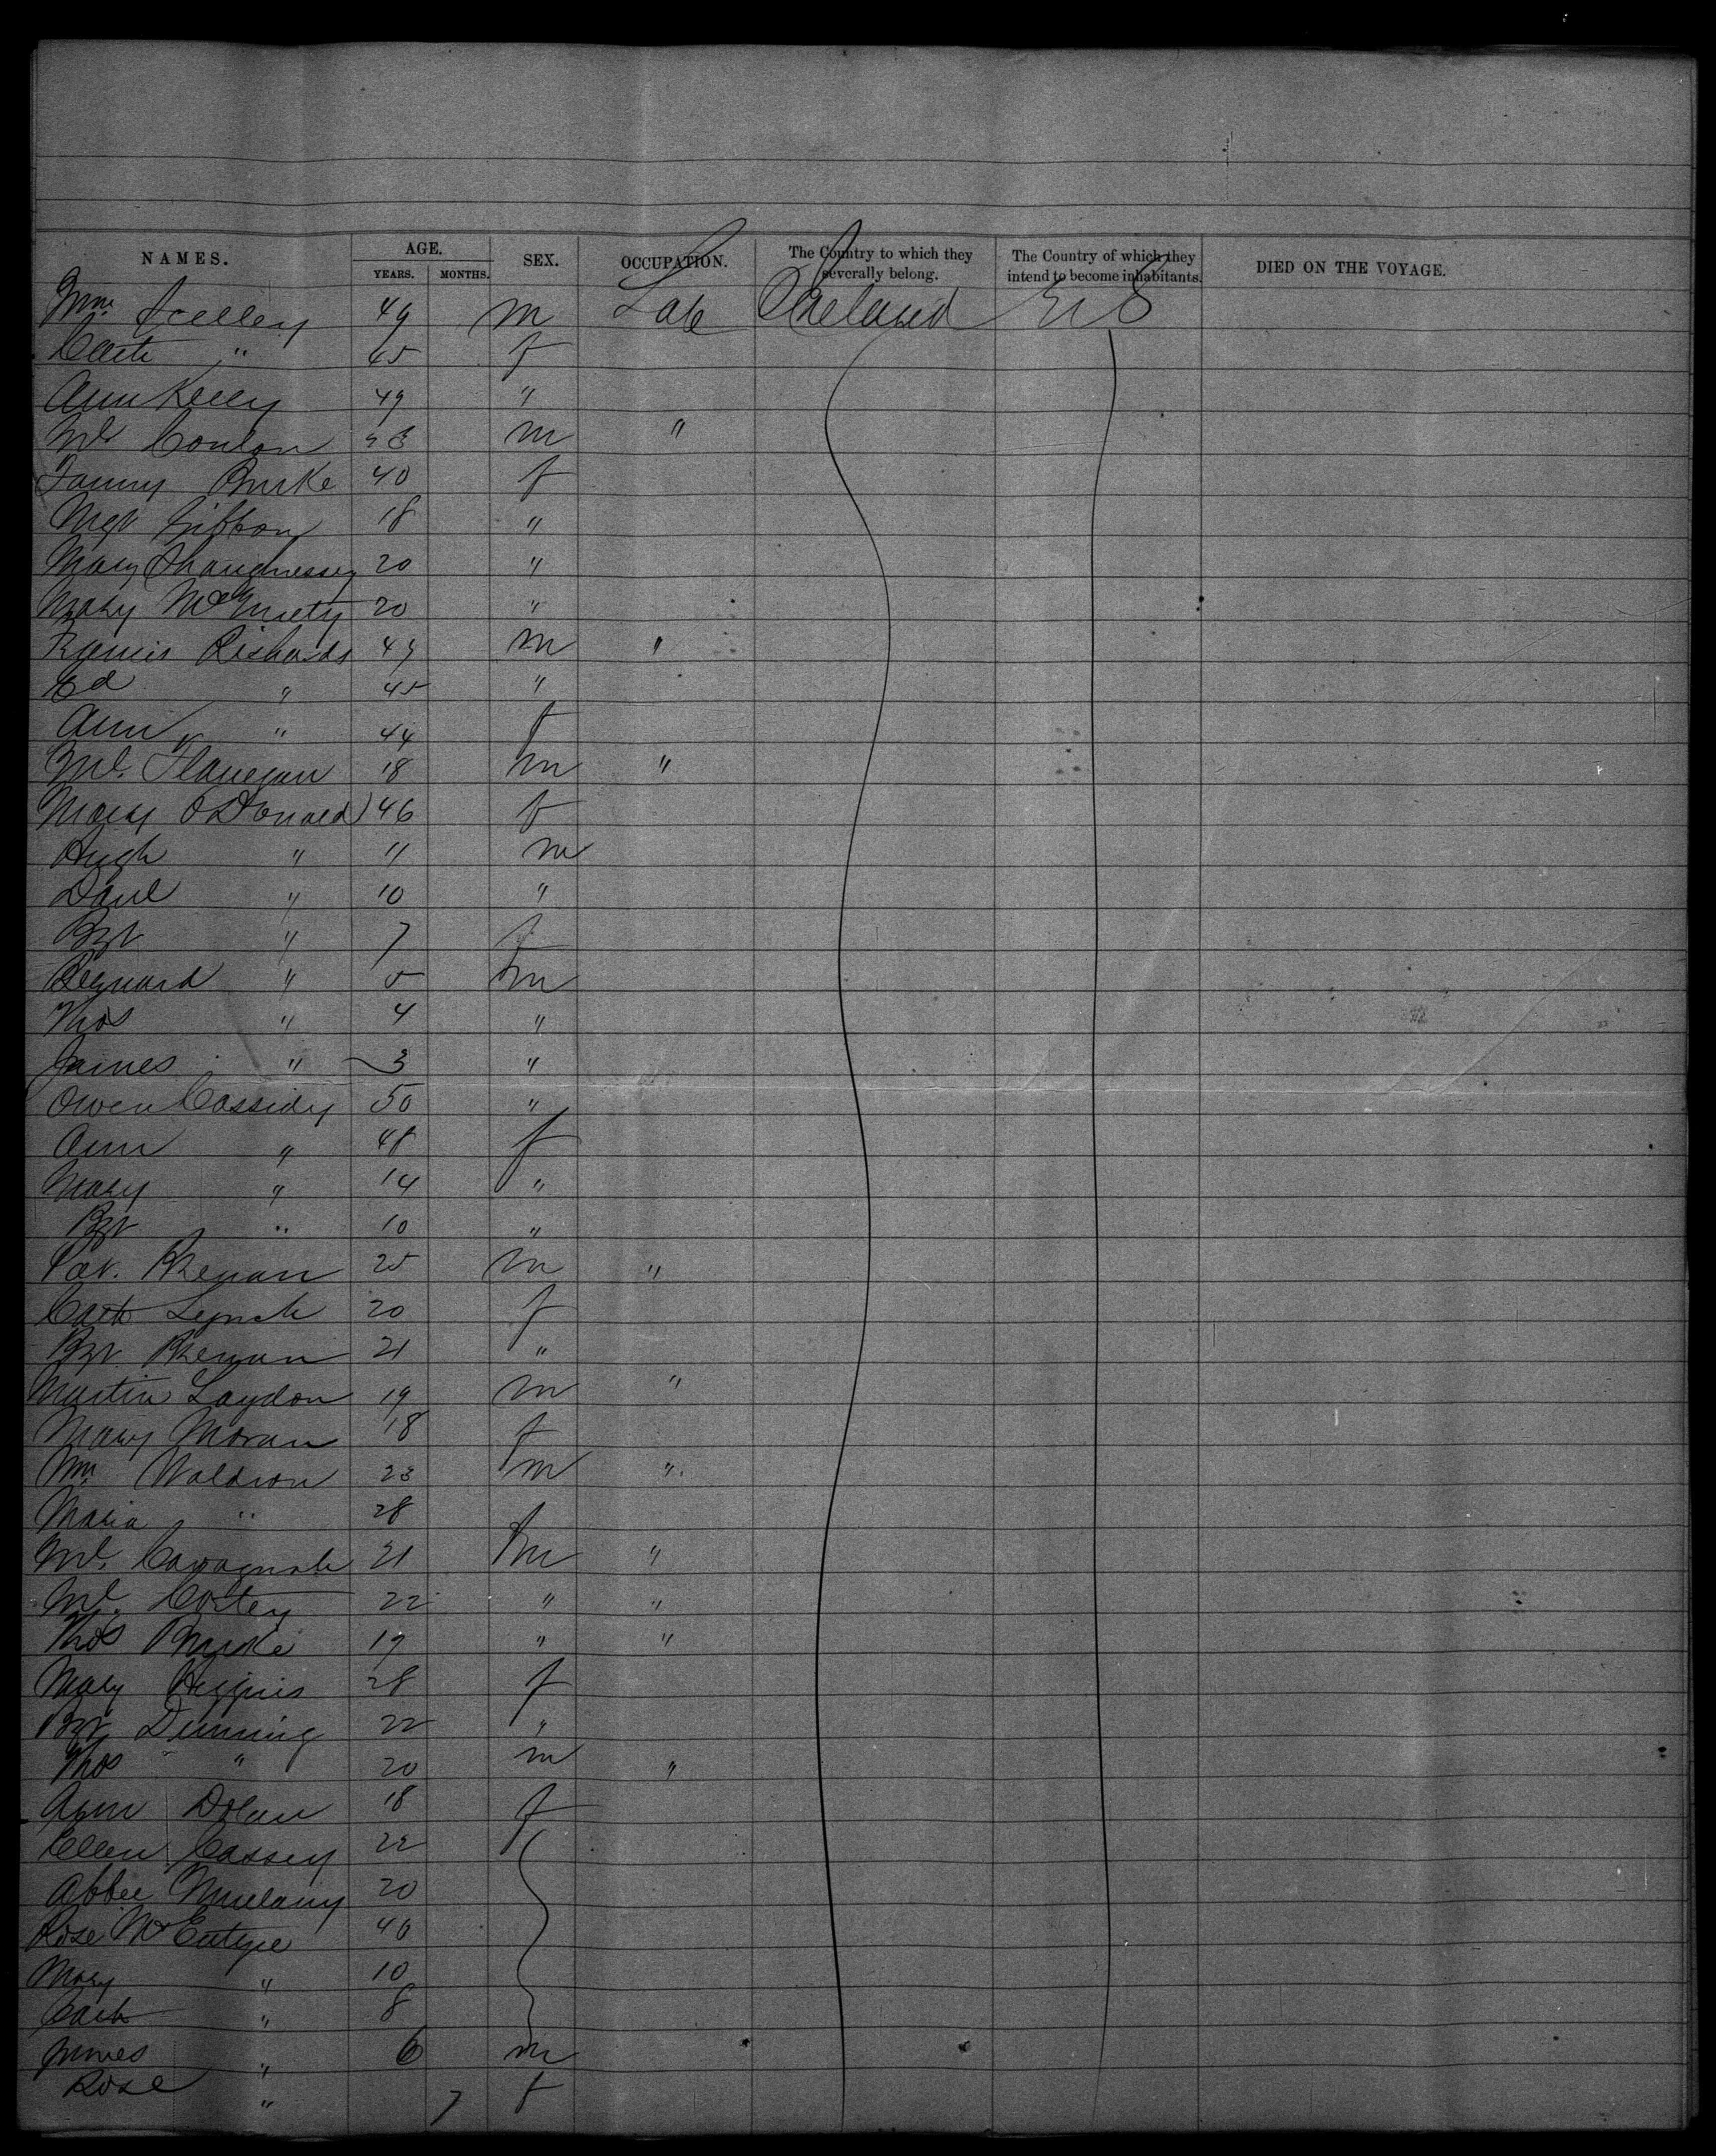 NAMES. AGE. YEARS. MONTHS. SEX. OCCUPATION. The Country to which they severally belong. The Country of which they intend to become inhabitants. DIED ON THE VOYAGE.
49 m Lab Ireland U S
Cath " 45 f
Ann Kelly 49 "
Ml Conlon m "
Fanny Burke 40 f
Mgt Gibbon 18 "
Mary Shaughnessy 20 "
Mary 20 "
Francis Richards 49 m "
Ed " 45 "
Ann " 44 f
Ml. Flanegan 18 m "
Mary O'Donald 46 f
Hugh " 11 m
Danl " 10 "
Bgt " 7 f
" 5 m
Thos " 4 "
James " 3 "
Owen Cassidy 50 "
Ann " 48 f
Mary " 14 "
Bgt " 10 "
Pat. 25 m "
Cath Lynch 20 f
Bgt. 21 "
Martin Laydon 19 m "
Mary Moran 18 f
Wm Waldron 23 m "
Maria " 28
Ml. Cavagnah 21 m "
Ml. 22 " "
Thos Burke 19 " "
Mary Higgins 28 f
Bgt Dunning 22 "
Thos " 20 m "
Ann Dolan 18 f
Ellen Cassey 22
Abbee Mullany 20
Rose McEntyre 40
Mary " 10
Cath " 8
James " 6 m
Rose " 7 f